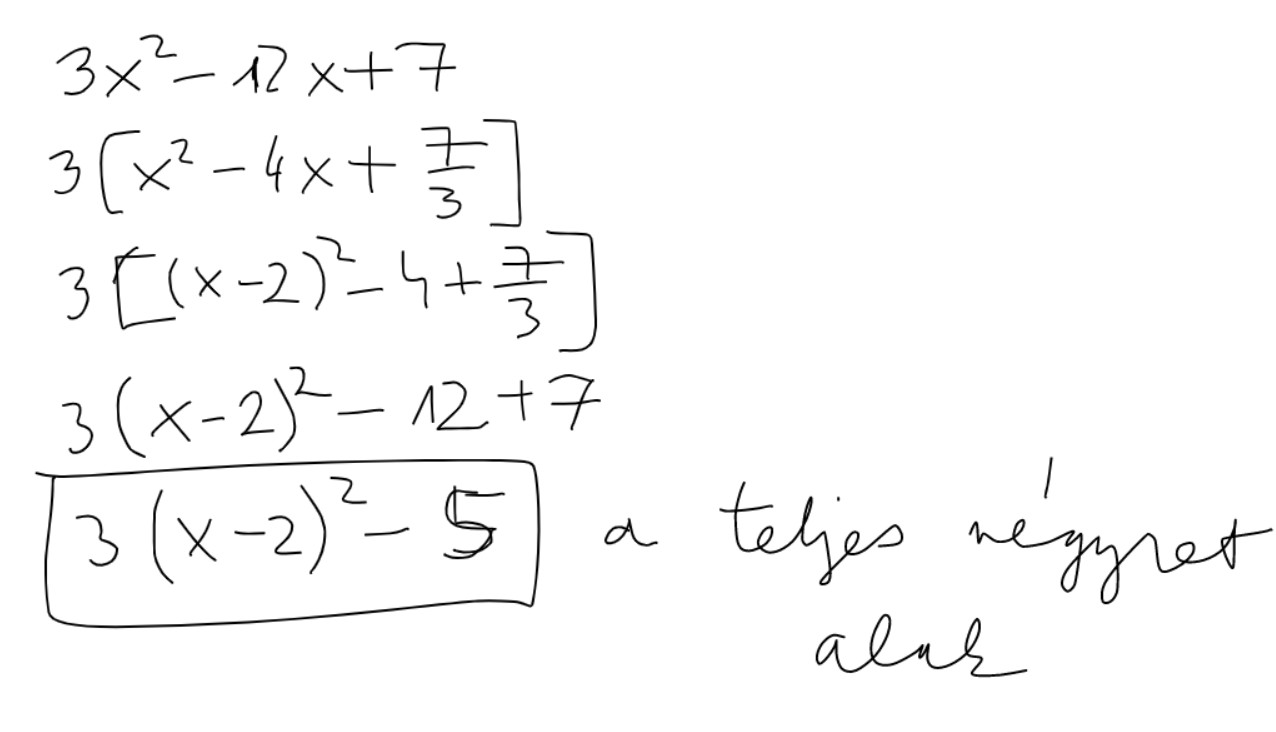 3x² - 12x + 7
3[x² - 4x + 7/3]
3[(x-2)² - 4 + 7/3]
3(x-2)² - 12 + 7
3(x-2)² - 5 a teljes négyzet
alak